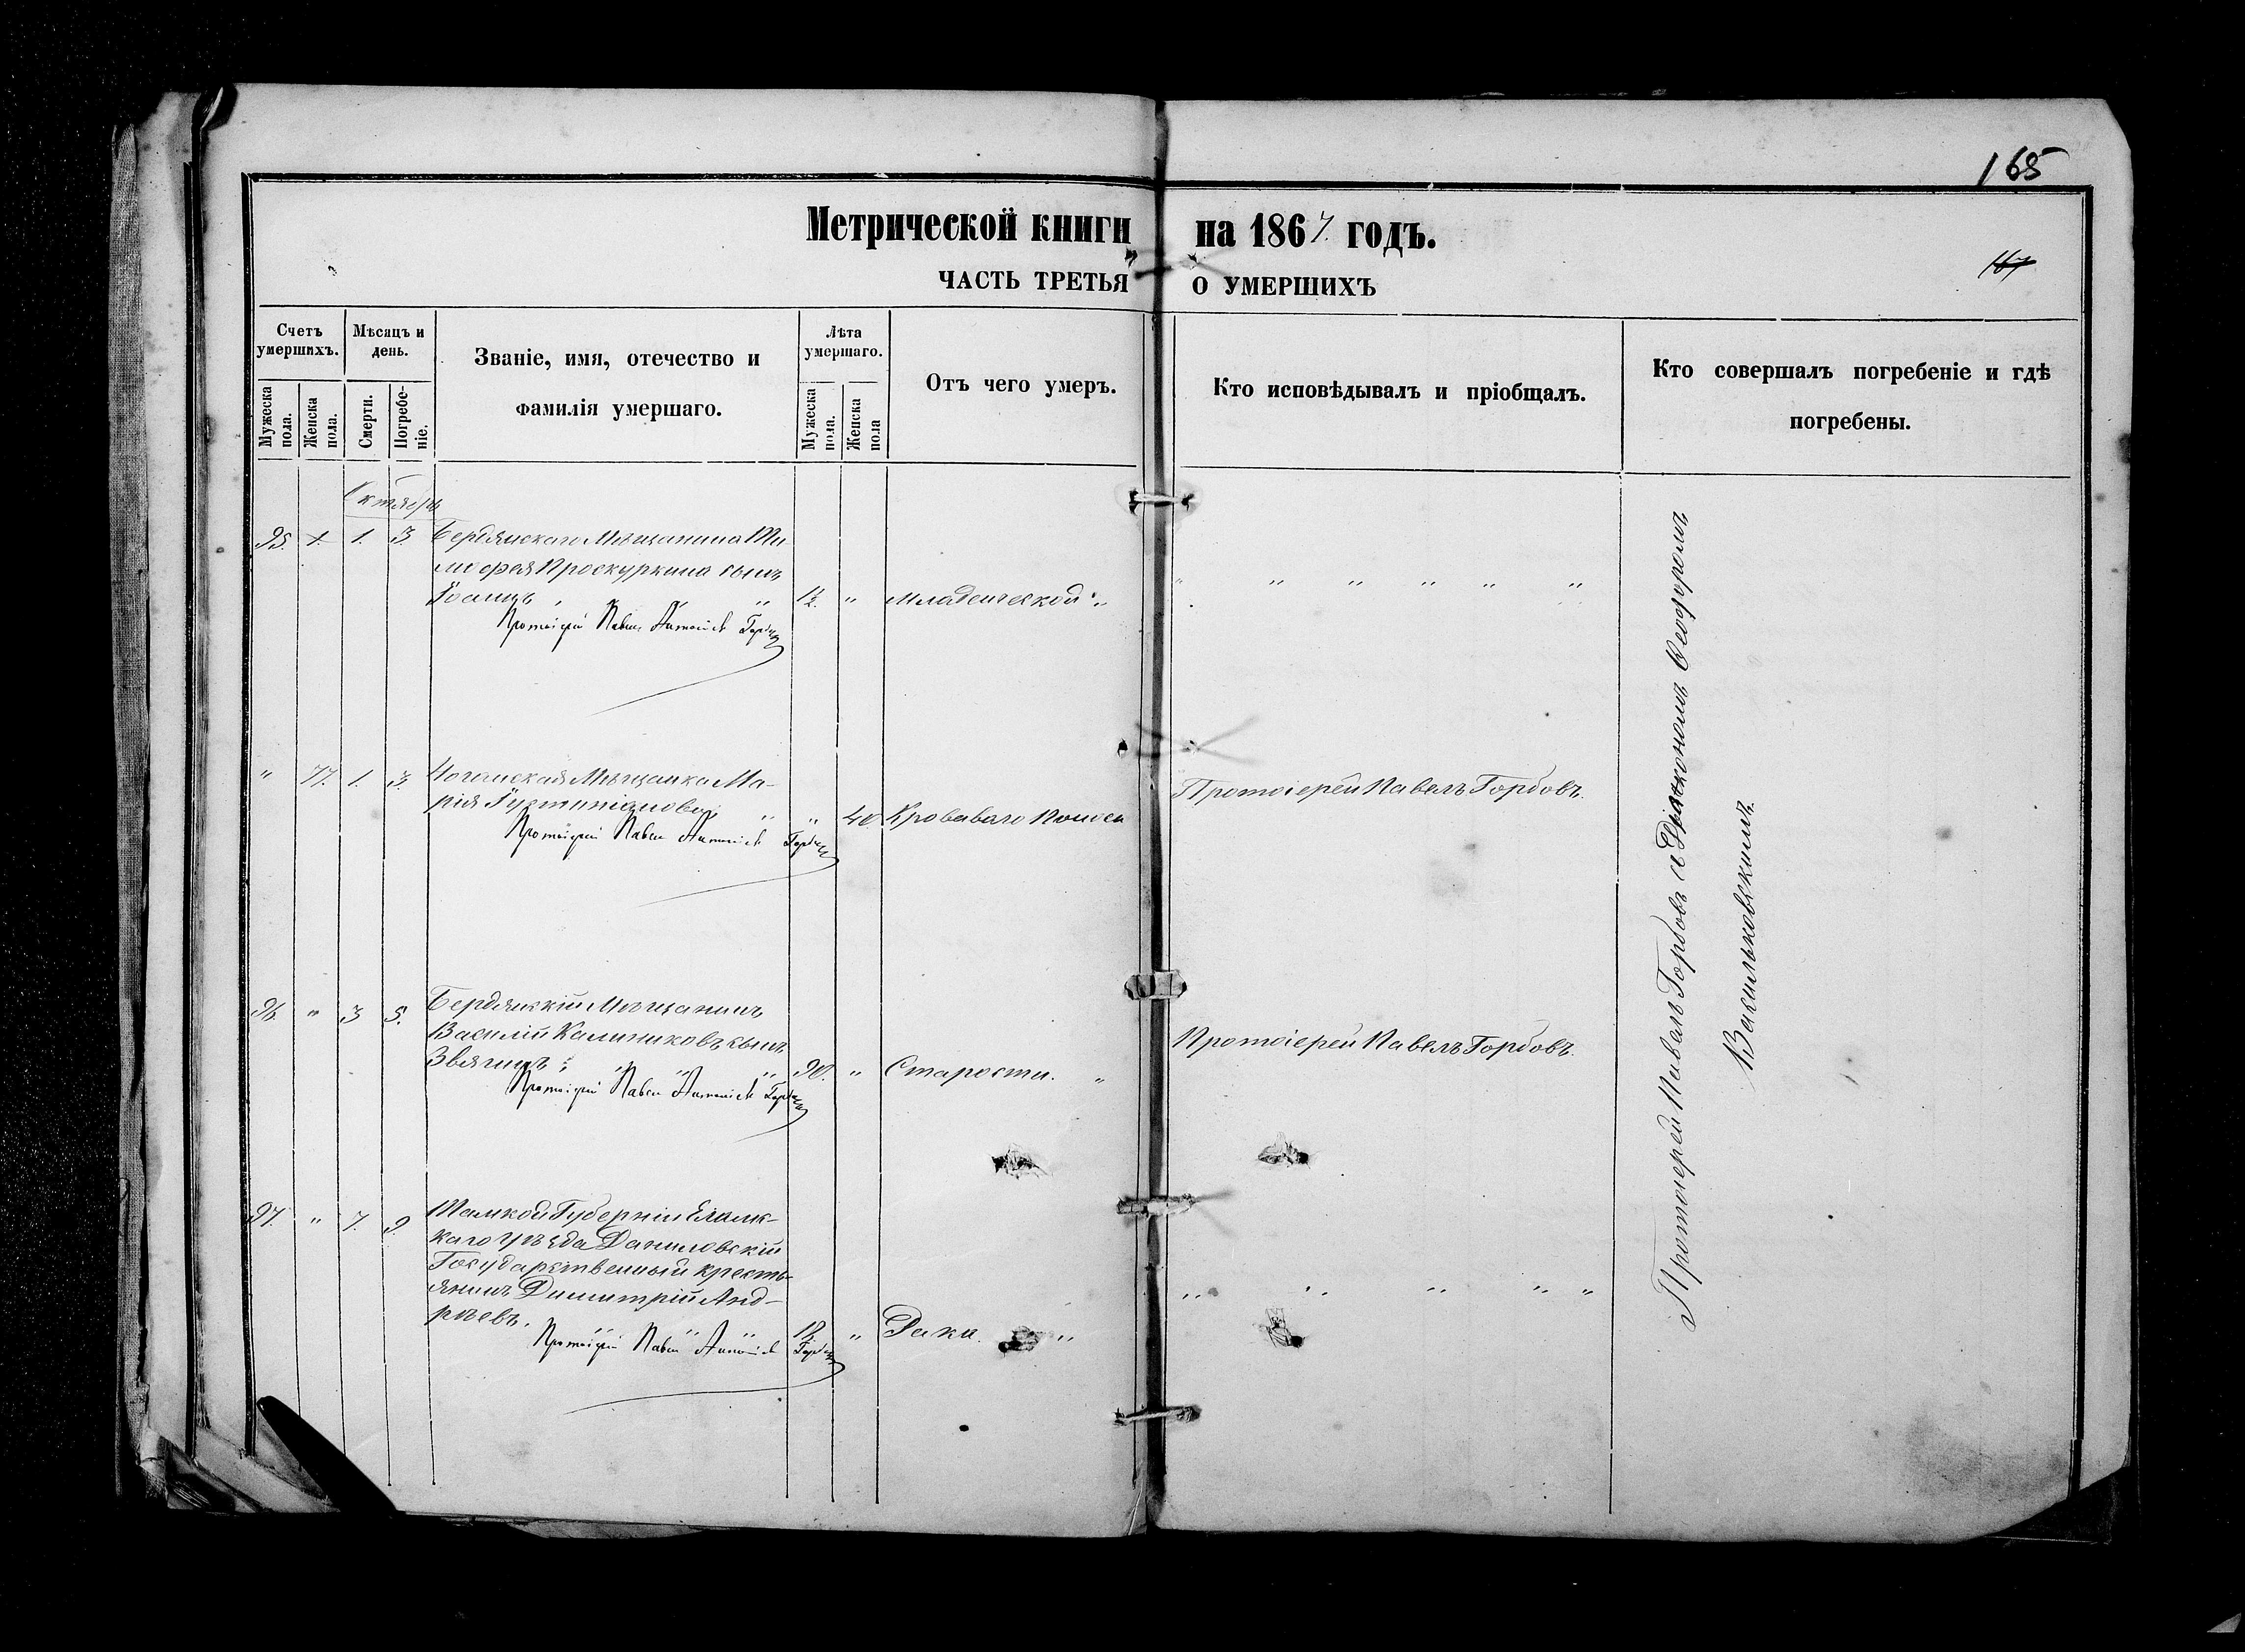 165
Метрической книги на 1867. годъ.
167
ЧАСТЬ ТРЕТЬЯ О УМЕРШИХЪ
Счетъ умершихъ.
Мужеска пола.
Женска пола.
Мѣсяцъ и день.
Смерти.
Погребе-
ніе.
Званіе, имя, отечество и
фамилія умершаго.
Лѣта умершаго.
Мужеска пола.
Женска пола
Отъ чего умеръ.
Кто исповѣдывалъ и пріобщалъ.
Кто совершалъ погребеніе и гдѣ
погребены.
Октябрь
95. 1. 3. Бердянскаго Мѣщанина Ти
мофея Проскуркина сынъ
Іоаннъ " " " 1/2. " Младенческой " " " " " " "
Протоіерей Павелъ Горбовъ
" 77. 1. 3. Ногайская Мѣщанка Ма-
рія " " 40 Кроваваго поноса Протоіерей Павелъ Горбовъ.
Протоіерей Павелъ Горбовъ
96. " 3 5. Бердянскій Мѣщанинъ
Василій Калинниковъ сынъ
Звягинъ " " " 90. " Старости. " Протоіерей Павелъ Горбовъ.
Протоіерей Павелъ Горбовъ
97. " 7. 9. Губерніи
каго Уѣзда Даниловскій
Государственный кресть-
янинъ Димитрій Анд-
реевъ. " " " 18. " Рака. " " " " " "
Протоіерей Павелъ Горбовъ
Протоіерей Павелъ Горбовъ и Діакономъ
Васильковскимъ.